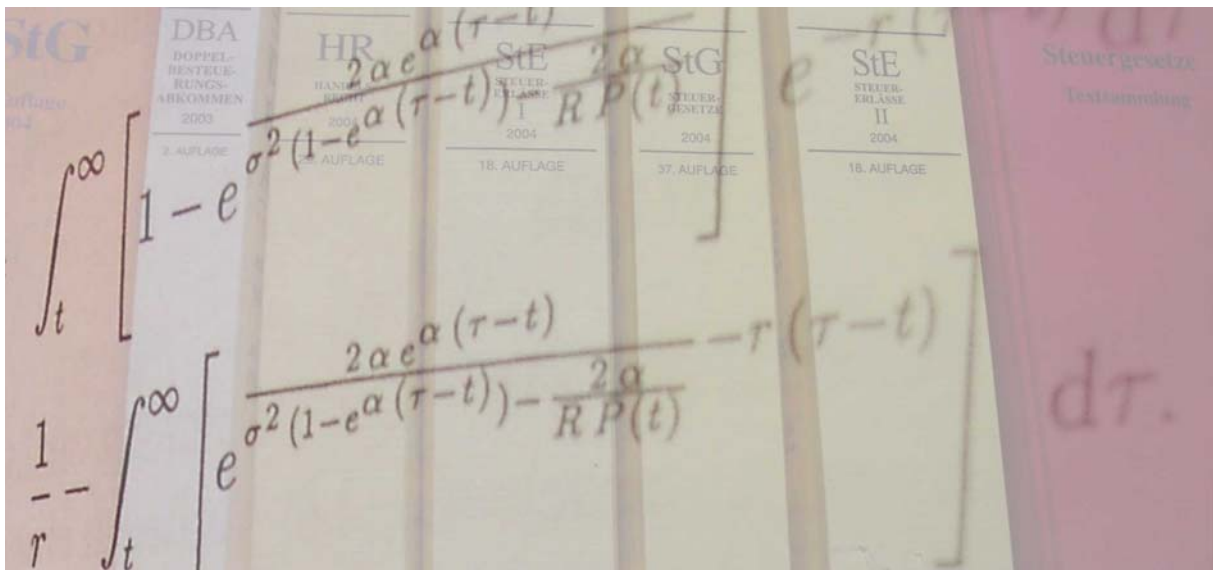 StG
Auflage
DBA
DOPPEL-
BESTEUE-
RUNGS-
ABKOMMEN
2003
2. AUFLAGE
HR
HANDELS-
RECHT
2004
AUFLAGE
StE
STEUER-
ERLÄSSE
I
2004
18. AUFLAGE
StG
STEUER-
GESETZE
2004
37. AUFLAGE
StE
STEUER-
ERLÄSSE
II
2004
18. AUFLAGE
Steuergesetze
Textsammlung
∫_t^∞ [1 − e^{2αe^{α(τ−t)} / (σ²(1−e^{α(τ−t)}) − 2α/(R P(t)))}] e^{−r(τ−t)} dτ
1/r − ∫_t^∞ [e^{2αe^{α(τ−t)} / (σ²(1−e^{α(τ−t)}) − 2α/(R P(t))) − r(τ−t)}] dτ.